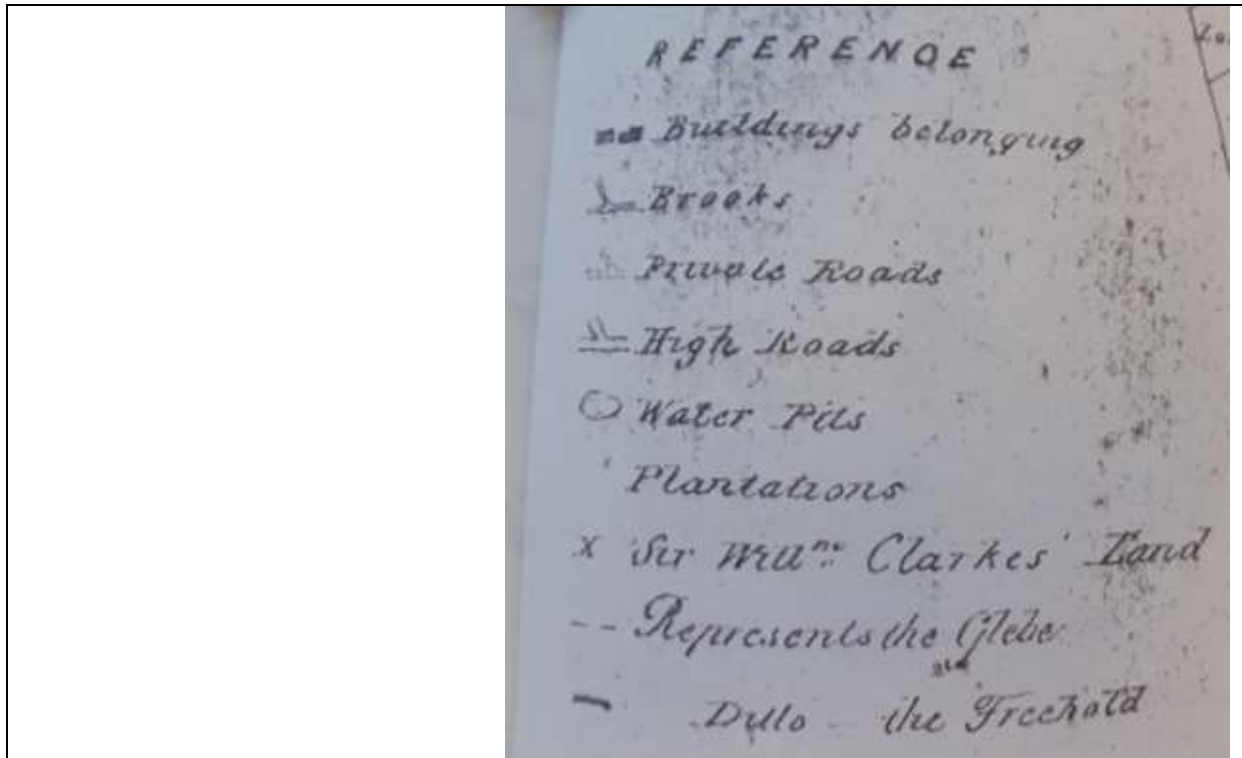 REFERENCE
Buildings belonging
Brooks
Private Roads
High Roads
Water Pits
Plantations
x Sir Willm Clarkes' Land
-- Represents the Glebe
Ditto - the Freehold